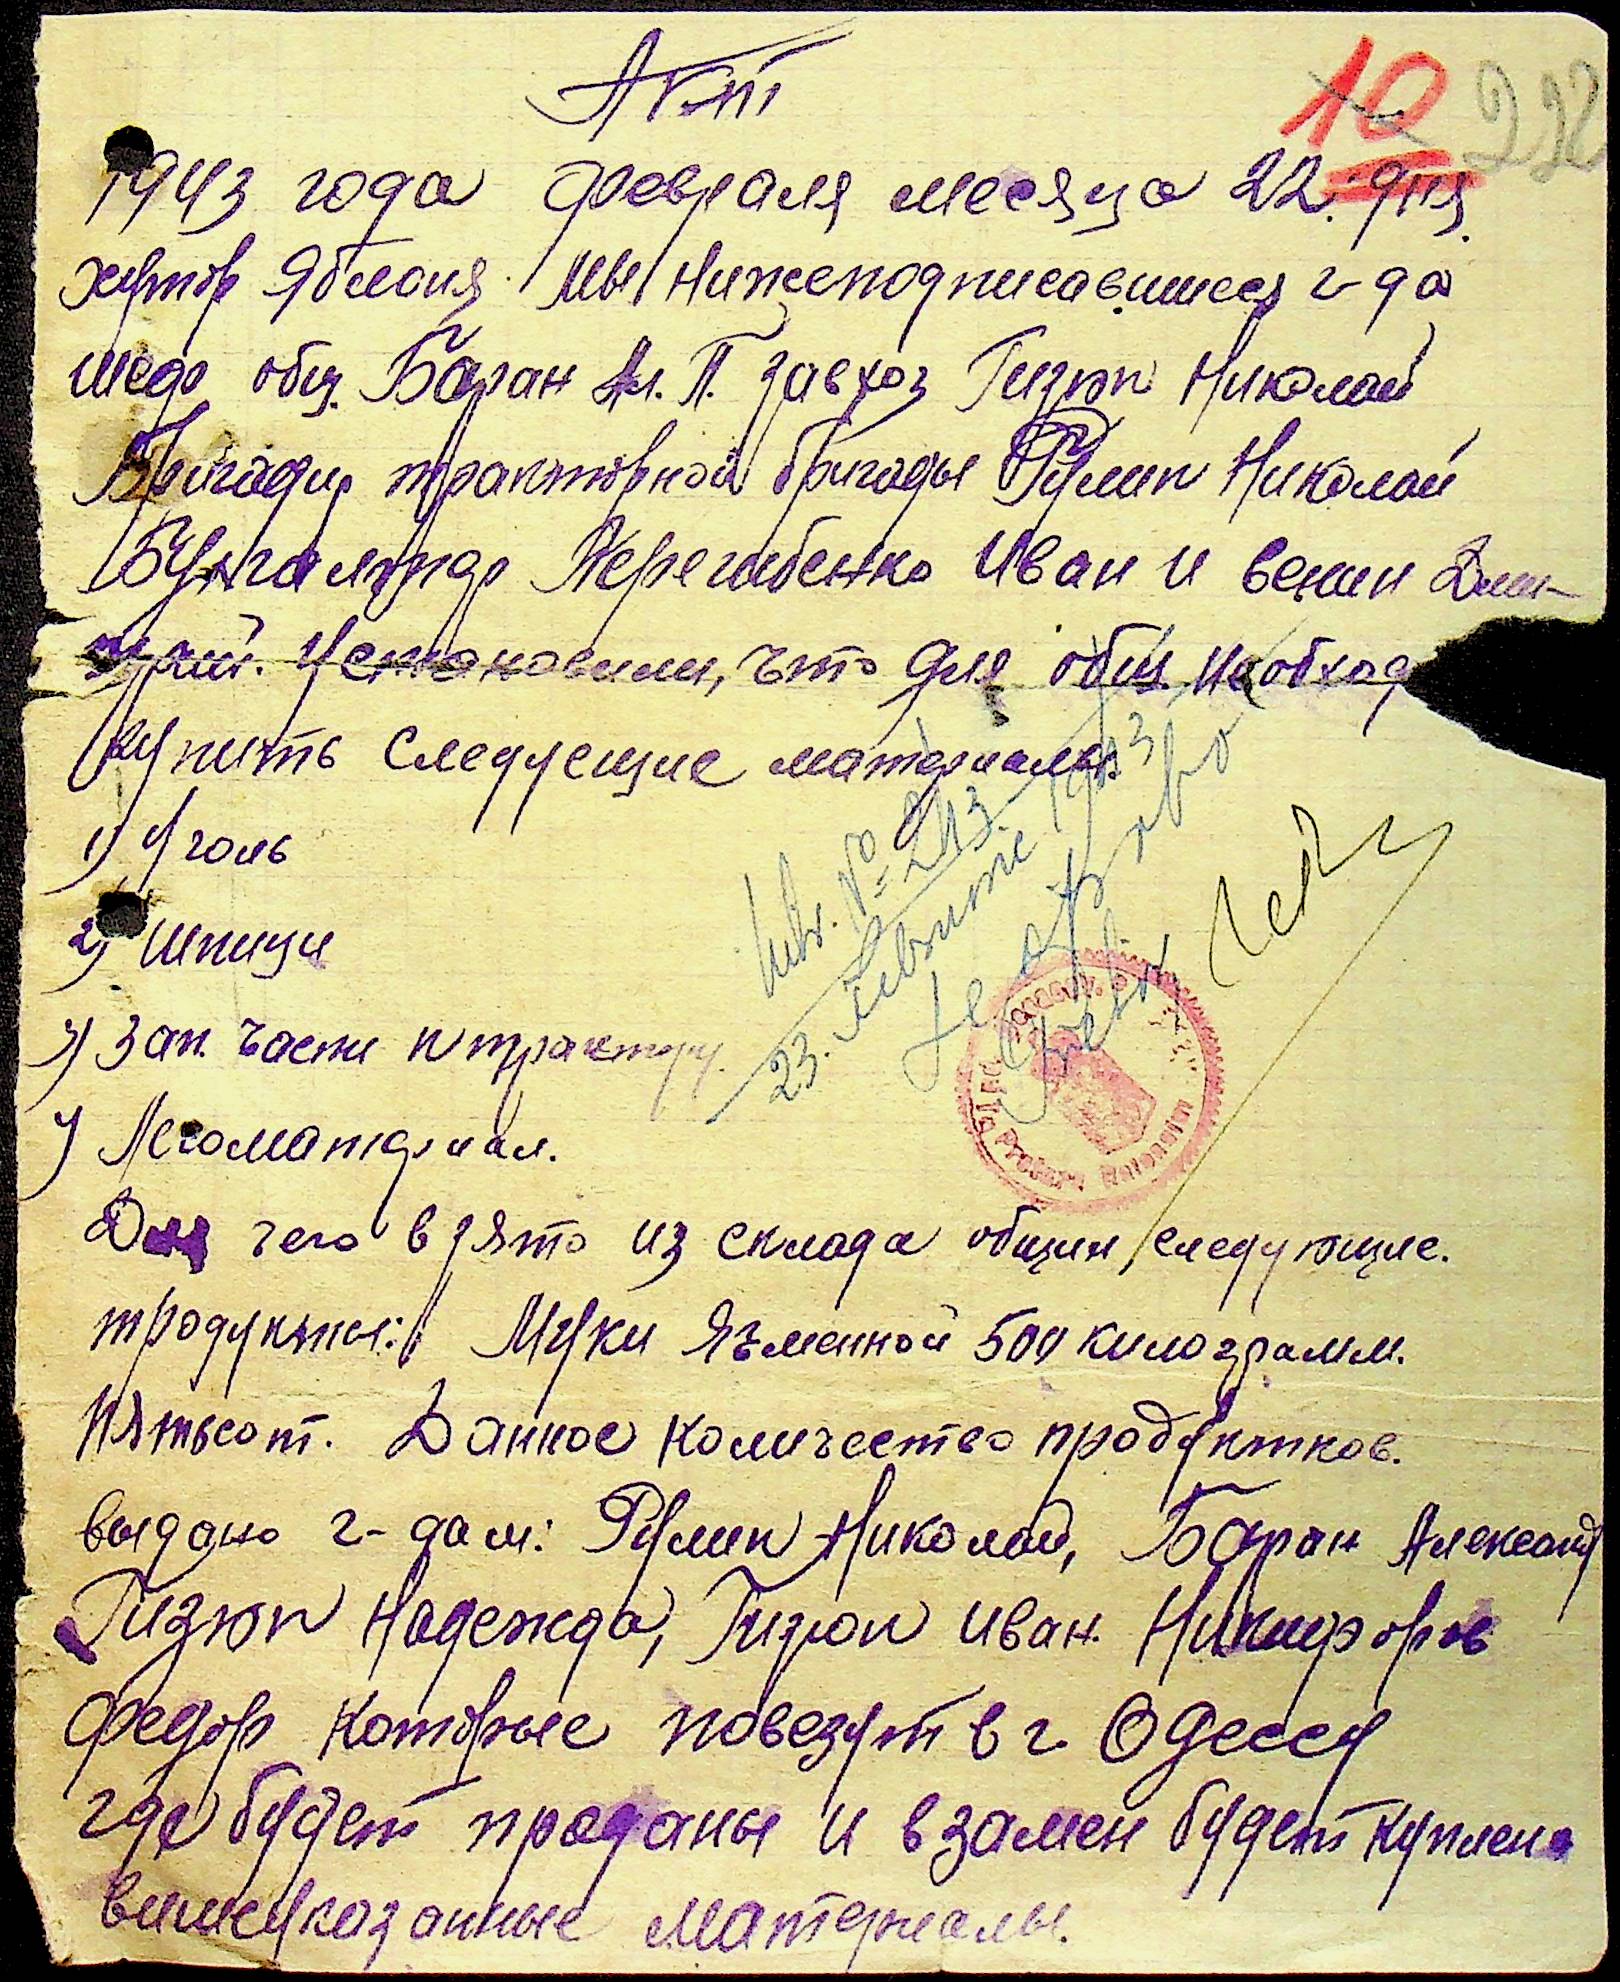 Акт
10 222
1943 года февраля месяца 22. дня
хутор Яблоня. Мы нижеподписавшиеся г-да
шеф общ. Баран Ал. П. завхоз Гизюн Николай
Бригадир тракторной бригады Рулин Николай
Бухгалтер Жерегибенко Иван и Дми-
трий. Установили, что для общ. необход
купить следующие материалы
1) Уголь
2) Шпици
3) Зап. части к трактору.
4) Лесоматериал.
Intr. № 243
23. Februarie 1943
Для чего взято из склада общин следующие.
продукты: Муки ячменной 500 килограмм.
Пятьсот. Данное количество продуктков.
выдано г-дам: Рулин Николай, Баран Александ
Гизюн Надежда, Гизюн Иван. Никифоров
Федор которые повезут в г. Одессу
где будет проданы и взамен будет куплено
вишеуказанные материалы.